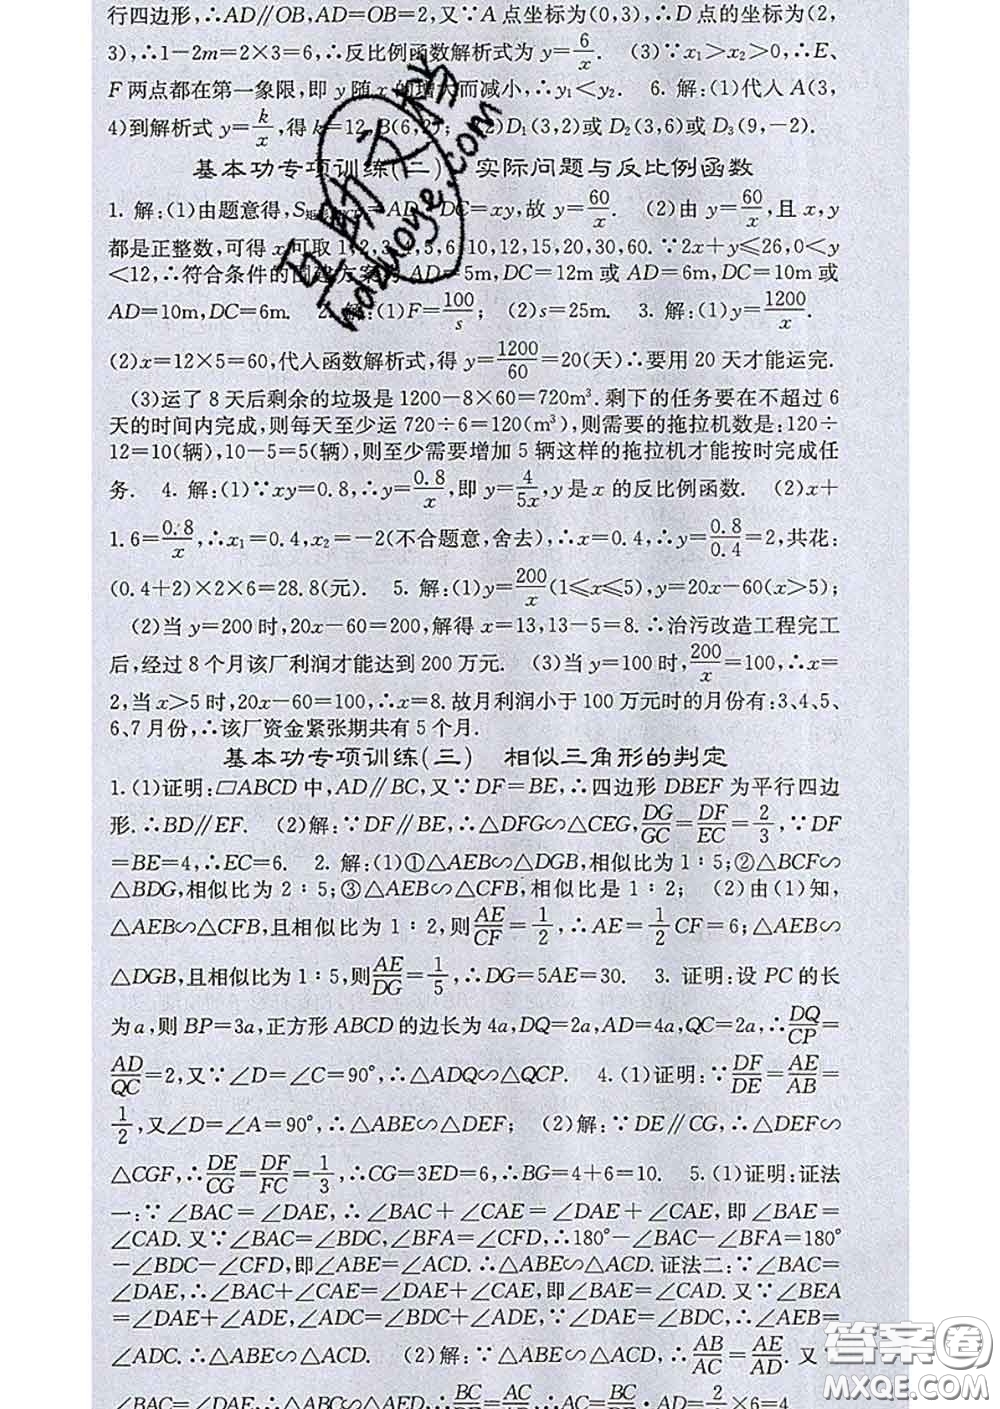 行四边形,∴AD∥OB,AD=OB=2,又∵A点坐标为(0,3),∴D点的坐标为(2,
3),∴1-2m=2×3=6,∴反比例函数解析式为y=6/x. (3)∵x₁>x₂>0,∴E、
F两点都在第一象限,即y随x的增大而减小,∴y₁<y₂. 6. 解:(1)代入A(3,
4)到解析式y=k/x,得k=12,B(6,2); (2)D₁(3,2)或D₂(3,6)或D₃(9,-2).
基本功专项训练(二) 实际问题与反比例函数
1. 解:(1)由题意得,S=AD·DC=xy,故y=60/x. (2)由y=60/x,且x,y
都是正整数,可得x可取1,2,3,4,5,6,10,12,15,20,30,60.∵2x+y≤26,0<y
<12,∴符合条件的围建方案为AD=5m,DC=12m或AD=6m,DC=10m或
AD=10m,DC=6m. 2. 解:(1)F=100/s; (2)s=25m. 3. 解:(1)y=1200/x.
(2)x=12×5=60,代入函数解析式,得y=1200/60=20(天)∴要用20天才能运完.
(3)运了8天后剩余的垃圾是1200-8×60=720m³.剩下的任务要在不超过6
天的时间内完成,则每天至少运720÷6=120(m³),则需要的拖拉机数是:120÷
12=10(辆),10-5=5(辆),则至少需要增加5辆这样的拖拉机才能按时完成任
务. 4. 解:(1)∵xy=0.8,∴y=0.8/x,即y=4/5x,y是x的反比例函数. (2)x+
1.6=0.8/x,∴x₁=0.4,x₂=-2(不合题意,舍去),∴x=0.4,∴y=0.8/0.4=2,共花:
(0.4+2)×2×6=28.8(元). 5. 解:(1)y=200/x(1≤x≤5),y=20x-60(x>5);
(2)当y=200时,20x-60=200,解得x=13,13-5=8.∴治污改造工程完工
后,经过8个月该厂利润才能达到200万元. (3)当y=100时,200/x=100,∴x=
2,当x>5时,20x-60=100,∴x=8.故月利润小于100万元时的月份有:3、4、5、
6、7月份,∴该厂资金紧张期共有5个月.
基本功专项训练(三) 相似三角形的判定
1. (1)证明:▱ABCD中,AD∥BC,又∵DF=BE,∴四边形DBEF为平行四边
形.∴BD∥EF. (2)解:∵DF∥BE,∴△DFG∽△CEG,DG/GC=DF/EC=2/3,∵DF
=BE=4,∴EC=6. 2. 解:(1)①△AEB∽△DGB,相似比为1∶5;②△BCF∽
△BDG,相似比为2∶5;③△AEB∽△CFB,相似比是1∶2; (2)由(1)知,
△AEB∽△CFB,且相似比为1∶2,则AE/CF=1/2,∴AE=1/2CF=6;△AEB∽
△DGB,且相似比为1∶5,则AE/DG=1/5,∴DG=5AE=30. 3. 证明:设PC的长
为a,则BP=3a,正方形ABCD的边长为4a,DQ=2a,AD=4a,QC=2a,∴DQ/CP=
AD/QC=2,又∵∠D=∠C=90°,∴△ADQ∽△QCP. 4. (1)证明:∵DF/DE=AE/AB=
1/2,又∠D=∠A=90°,∴△ABE∽△DEF; (2)解:∵DE∥CG,∴△DEF∽
△CGF,∴DE/CG=DF/FC=1/3,∴CG=3ED=6,∴BG=4+6=10. 5. (1)证明:证法
一:∵∠BAC=∠DAE,∴∠BAC+∠CAE=∠DAE+∠CAE,即∠BAE=
∠CAD.又∵∠BAC=∠BDC,∠BFA=∠CFD,∴180°-∠BAC-∠BFA=180°
-∠BDC-∠CFD,即∠ABE=∠ACD.∴△ABE∽△ACD.证法二:∵∠BAC=
∠DAE,∴∠BAC+∠CAE=∠DAE+∠CAE,即∠BAE=∠CAD.又∵∠BEA
=∠DAE+∠ADE,∠ADC=∠BDC+∠ADE,∵∠DAE=∠BDC,∴∠AEB=
∠ADC.∴△ABE∽△ACD. (2)解:∵△ABE∽△ACD,∴AB/AC=AE/AD.又∵
∠BAC=∠DAE,∴△ABC∽△AED,∴BC/DE=AC/AD,∴AC=BC/DE·AD=2/2×6=4
作业帮
zuoye
.com
答案圈
MXQE.COM